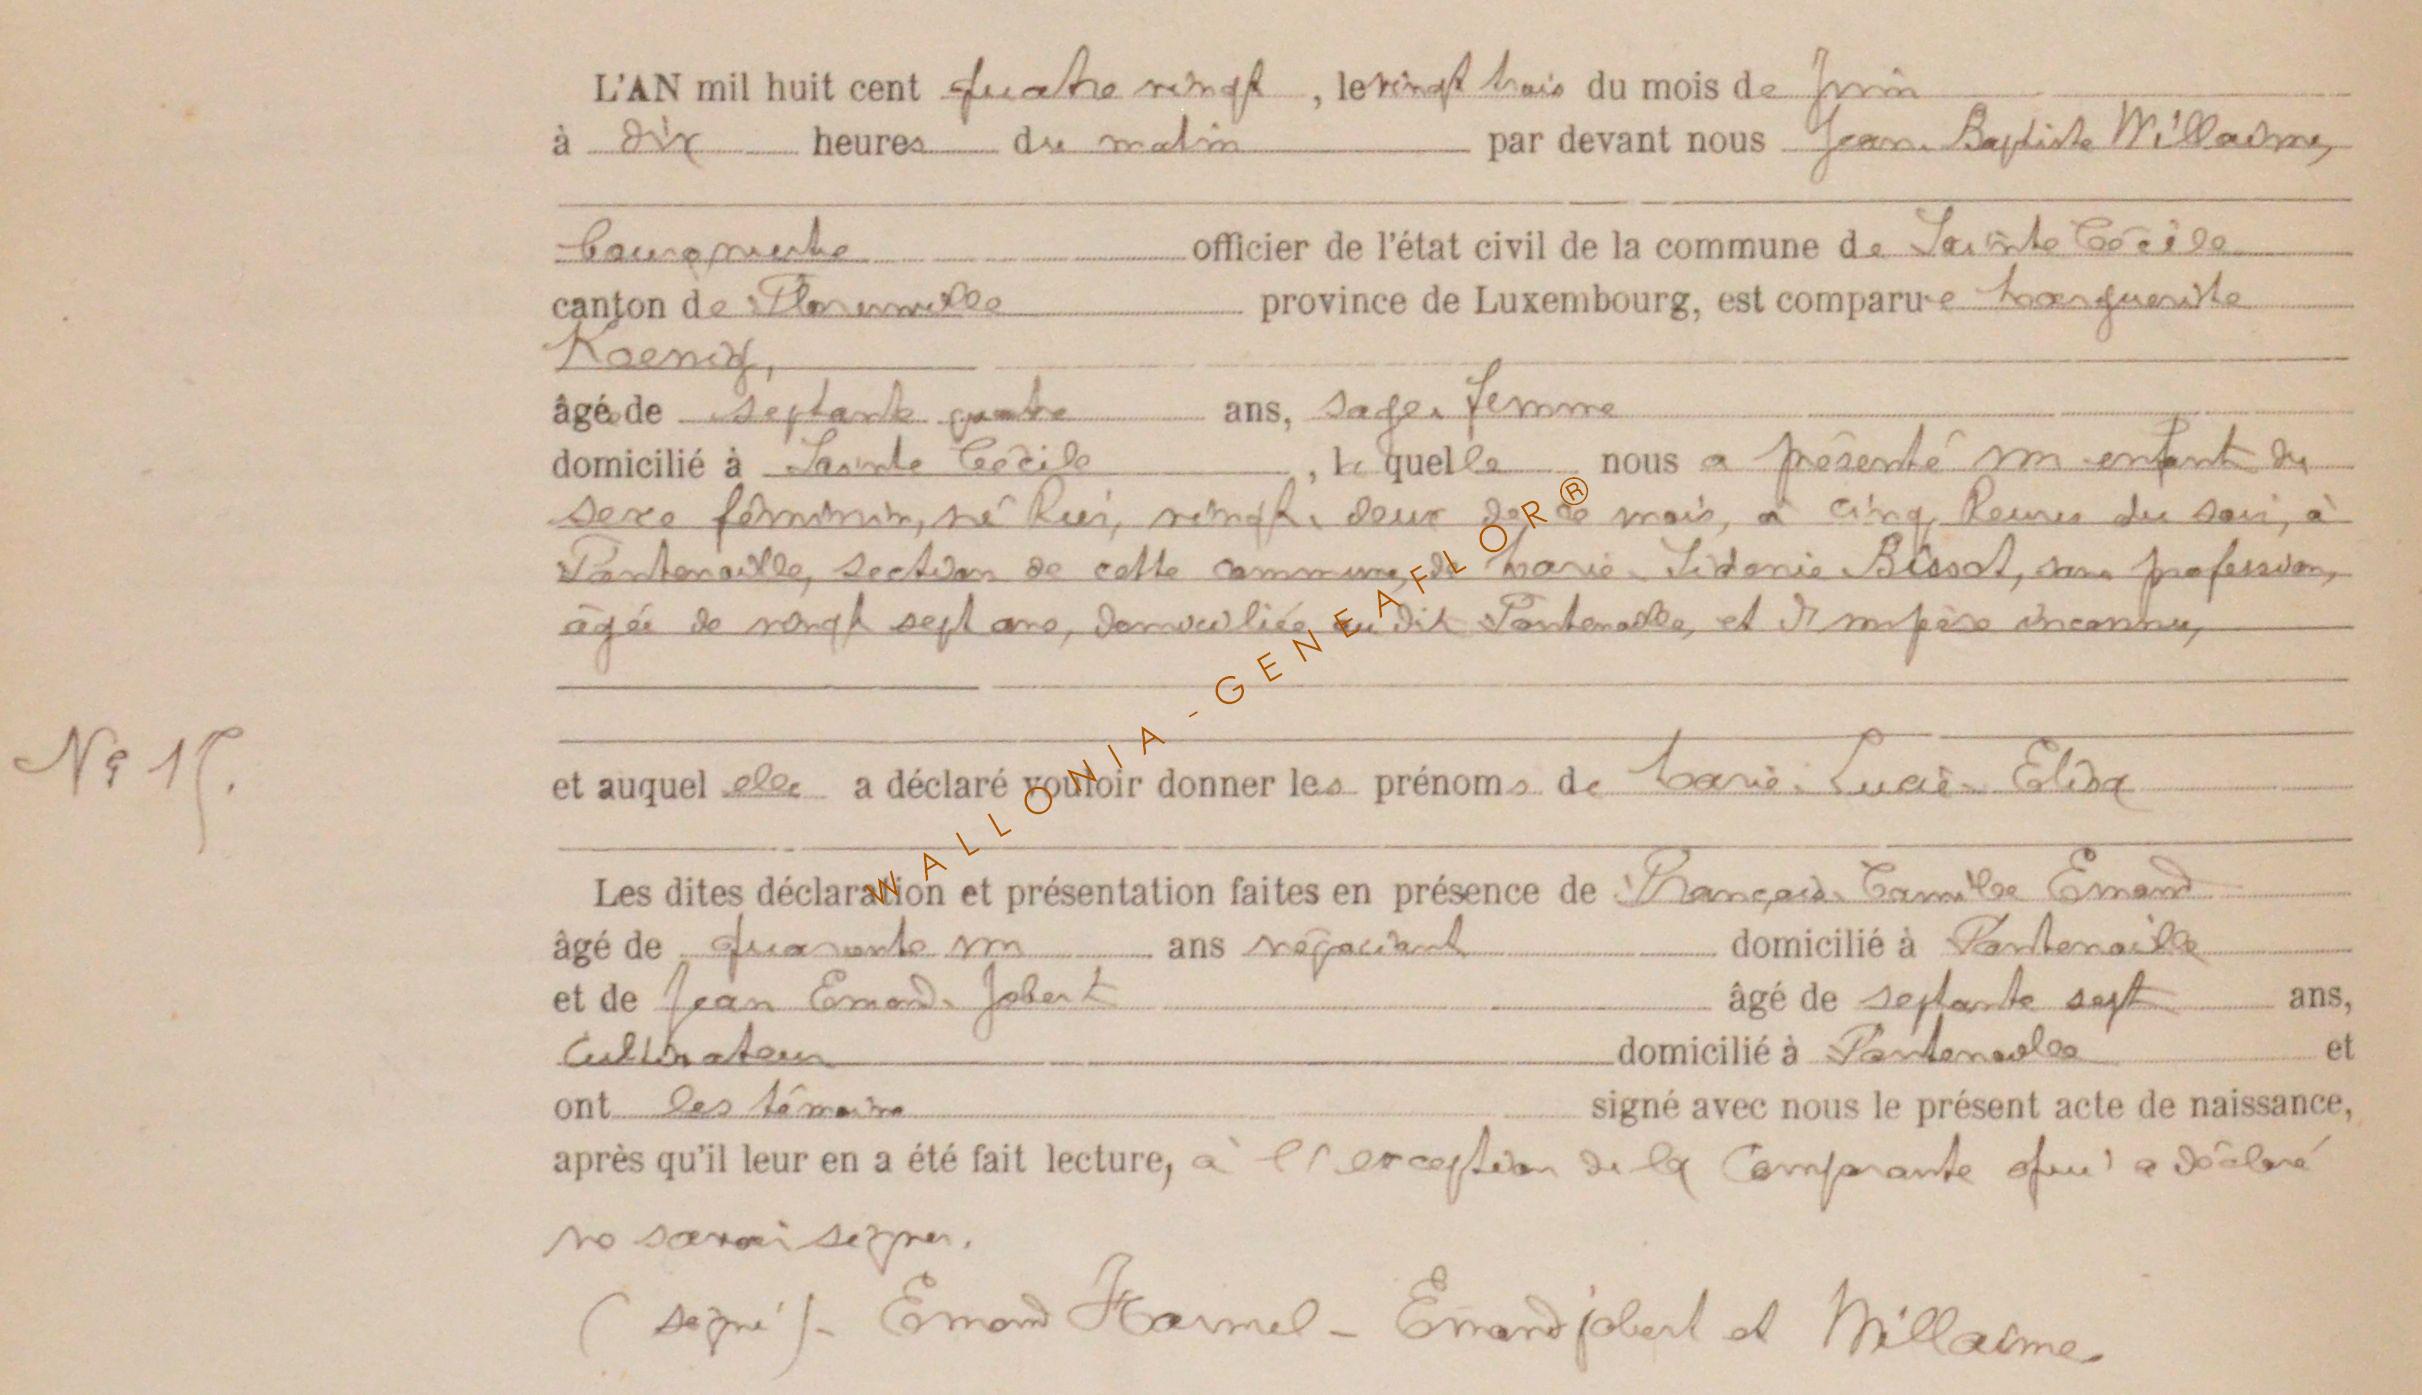 L'AN mil huit cent quatre vingt, le vingt trois du mois de Juin
à dix heures du matin par devant nous Jean-Baptiste Willaime,
Bourgmestre officier de l'état civil de la commune de Sainte Cécile
canton de Florenville province de Luxembourg, est comparue Marguerite
Koenig,
âgée de septante quatre ans, sage-femme
domicilié à Sainte Cécile, laquelle nous a présenté un enfant du
sexe féminin, né hier, vingt-deux de ce mois, à cinq heures du soir, à
Fontenoille, section de cette commune, de Marie-Sidonie Bissot, sans profession,
âgée de vingt sept ans, domiciliée au dit Fontenoille, et d'un père inconnu,
N° 15.
et auquel elle a déclaré vouloir donner les prénoms de Marie-Lucie-Elisa
Les dites déclaration et présentation faites en présence de François-Camille Emond
âgé de quarante un ans négociant domicilié à Fontenoille
et de Jean Emond-Jobert âgé de septante sept ans,
Cultivateur domicilié à Fontenoille et
ont les témoins signé avec nous le présent acte de naissance,
après qu'il leur en a été fait lecture, à l'exception de la Comparante qui a déclaré
ne savoir signer.
(signé)- Emond Harmel - Emond jobert et Willaime.
WALLONIA-GENEAFLOR®